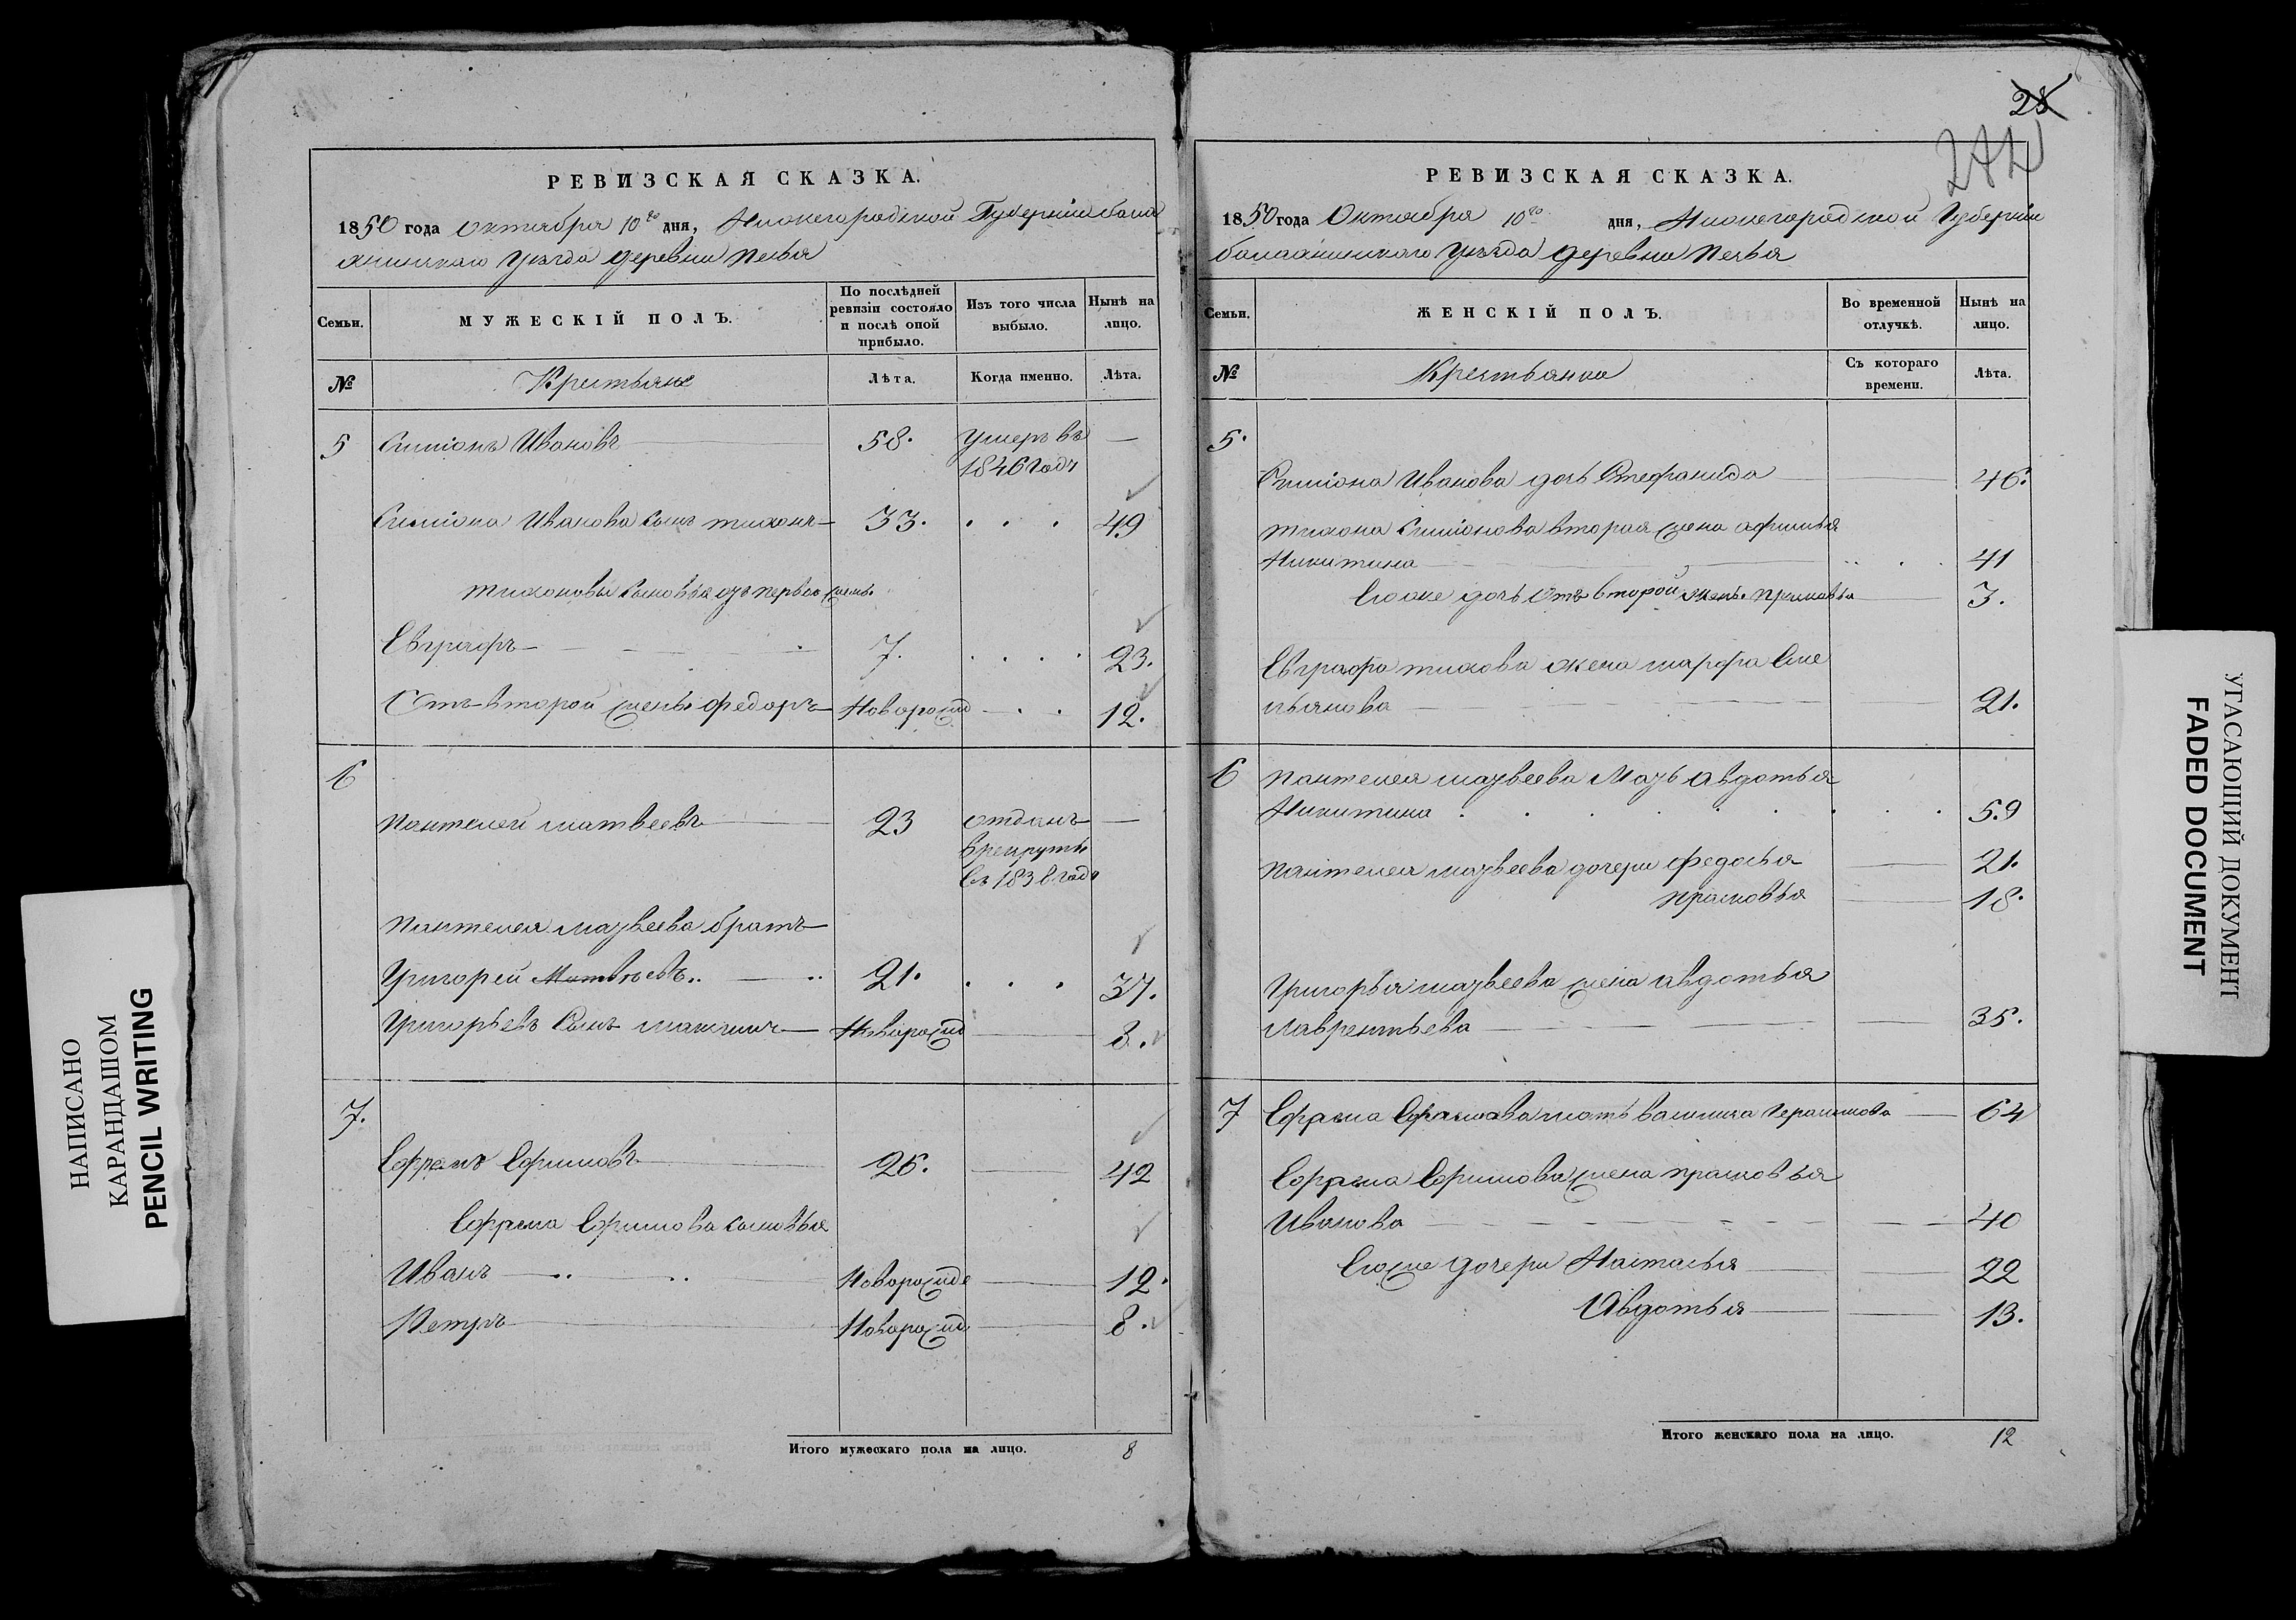 РЕВИЗСКАЯ СКАЗКА.
1850 года Октября 10го дня, Нижегородской Губернiи бала
хнинскаго Уезда деревни Пелья
Семьи.
МУЖЕСКІЙ ПОЛЪ.
По послѣдней ревизіи состояло и послѣ оной прибыло.
Изъ того числа выбыло.
Нынѣ на лицо.
№
Крестьяне
Лѣта.
Когда именно.
Лѣта.
5 Симiонъ Ивановъ 58. Умеръ въ —
1846 Годꙋ
Симiона Иванова сынъ тихонъ 33. . . . 49
тихоновы сыновья отъ первой жены.
Евграфъ 7. . . . . 23.
Отъ второй жены федоръ Новорожд . . 12.
6
Пантелей матвеевъ 23 отданъ —
в рекруты
въ 1836 годꙋ
Пантелея матвеева братъ
Григорей Матвѣевъ 21. . . . 37.
Григорьевъ сынъ максимъ Новорожд 8.
7.
Ефремъ Ефимовъ 26. 42
Ефрема Ефимова сыновья
Иванъ Новорожде 12.
Петръ Новорожд 8.
Итого мужескаго пола на лицо. 8
28
242
РЕВИЗСКАЯ СКАЗКА.
1850 года Октября 10го дня, Нижегородской Губернiи
балахнинского уезда деревни Пелья
Семьи.
ЖЕНСКІЙ ПОЛЪ.
Во временной отлучкѣ.
Нынѣ на лицо.
№
Крестьянки
Съ котораго времени.
Лѣта.
5.
Симiона Иванова дочь Стефанида 46.
тихона Симiонова вторая жена афимья
Никитина 41
Ево же дочь отъ второй жены прасковья 3.
Евграфа тихова жена марфа Еме
льянова 21.
6 Пантелея матвеева Мать авдотья
Никитина 59
Пантелея матвеева дочери федосья 21.
прасковья 18.
Григорья матвеева жена авдотья
лаврентьева 35.
7 Ефрема Ефимова мать василиса Герасимова 64
Ефрема Ефимова жена прасковья
Иванова 40
Ево же дочери Настасья 22
Авдотья 13.
Итого женскаго пола на лицо. 12
НАПИСАНО
КАРАНДАШОМ
PENCIL WRITING
УГАСАЮЩИЙ ДОКУМЕНТ
FADED DOCUMENT